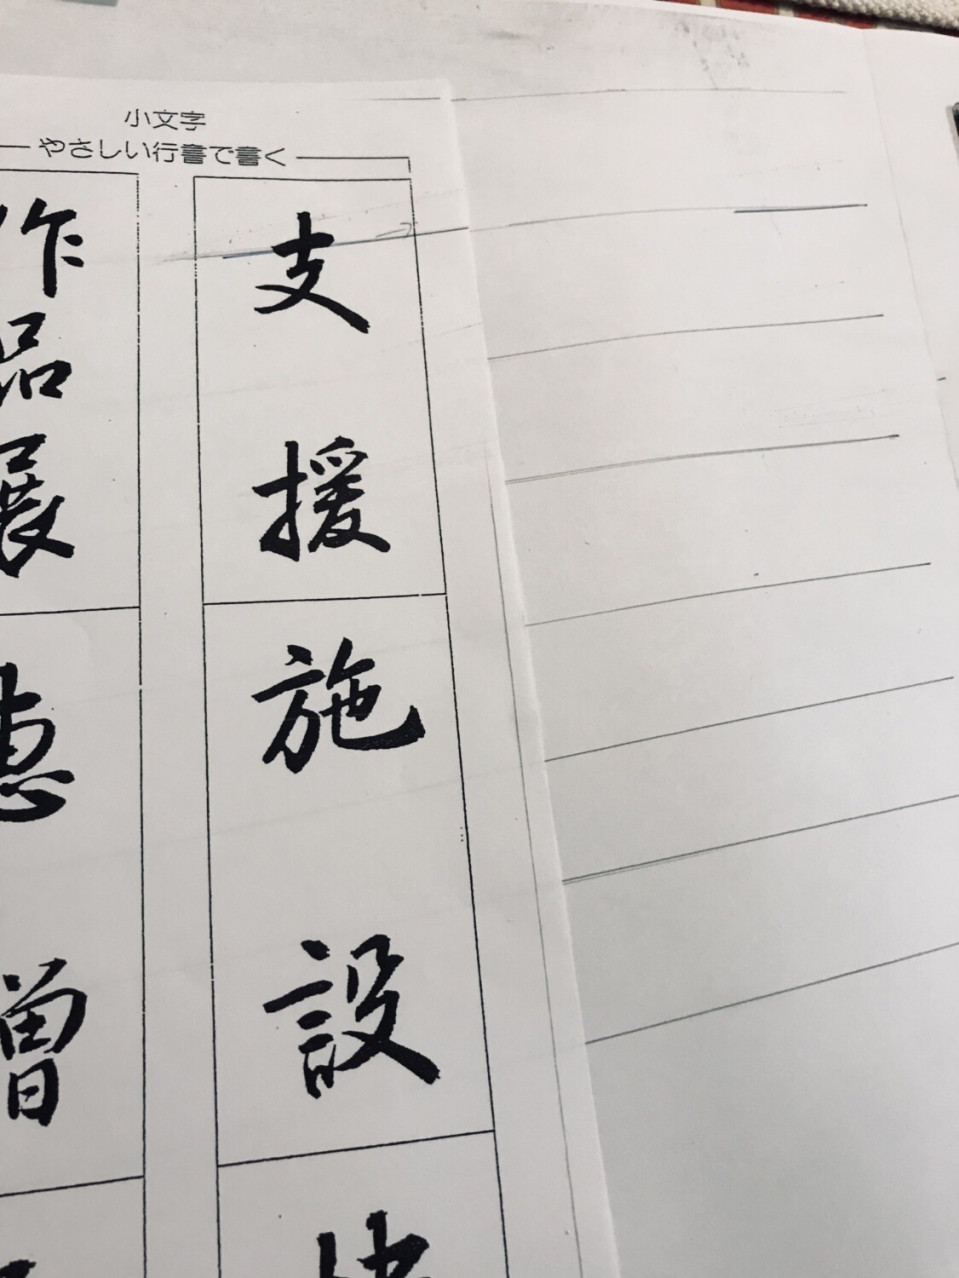 小文字
やさしい行書で書く
支援
施設
作品展
恵